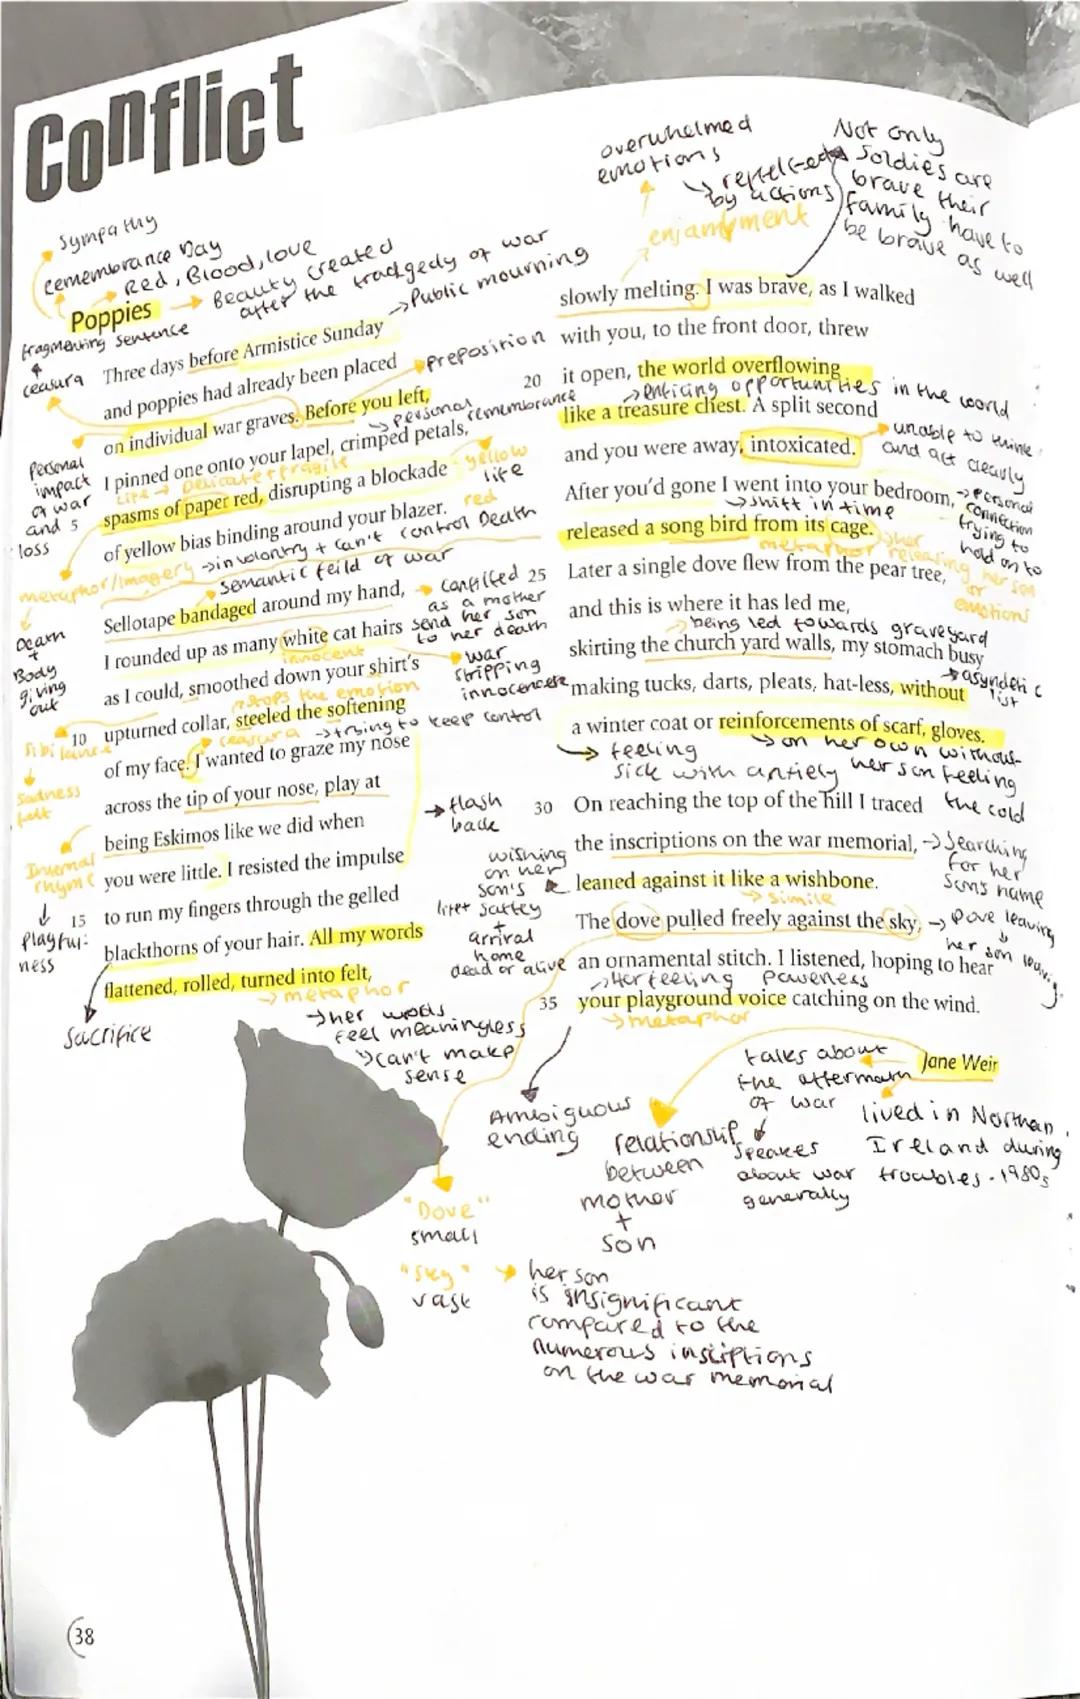 Conflict
sympathy
remembrance Day
Red, Blood, love
Poppies
Beauty created
after the tradgedy of war
Public mourning
fragmenting sentence
ceasura
Three days before Armistice Sunday
and poppies had already been placed
preposition
on individual war graves. Before you left,
personal
remembrance
I pinned one onto your lapel, crimped petals,
Life → Delicate + fragile
yellow
life
Personal
impact
of war
and 5
loss
spasms of paper red, disrupting a blockade
red
Death
of yellow bias binding around your blazer.
metaphor/Imagery → involontry + can't control
semantic feild of war
Death
+
Body
giving
out
Sellotape bandaged around my hand,
conflited
as a mother
send her son
to her death
I rounded up as many white cat hairs
innocent
war
stripping
as I could, smoothed down your shirt's
stops the emotion
10 upturned collar, steeled the softening
ceasura → trying to keep control
Sibilance
Sadness
felt
of my face. I wanted to graze my nose
across the tip of your nose, play at
being Eskimos like we did when
flash
back
Internal
rhyme
playful-
ness
you were little. I resisted the impulse
15 to run my fingers through the gelled
blackthorns of your hair. All my words
flattened, rolled, turned into felt,
metaphor
her words
feel meaningless
can't make
sense
Sacrifice
overwhelmed
emotions
by actions
enjambment
Not only
Soldies are
brave their
family have to
be brave as well
slowly melting. I was brave, as I walked
with you, to the front door, threw
20 it open, the world overflowing
enticing opportunities in the world
like a treasure chest. A split second
and you were away, intoxicated.
unable to think
and act clearly
After you'd gone I went into your bedroom,
shift in time
Personal
connection
trying to
hold on to
released a song bird from its cage.
metaphor
her
releasing her son
or
emotions
25 Later a single dove flew from the pear tree,
and this is where it has led me,
being led towards graveyard
skirting the church yard walls, my stomach busy
making tucks, darts, pleats, hat-less, without
asyndetic
list
a winter coat or reinforcements of scarf, gloves.
feeling
sick with
on her own without
her son feeling
the cold
30 On reaching the top of the hill I traced
the inscriptions on the war memorial,
Searching
for her
son's name
wishing
on her
son's
+
arrival
home
dead or alive
leaned against it like a wishbone.
simile
The dove pulled freely against the sky,
Dove leaving
her son leaving
an ornamental stitch. I listened, hoping to hear
Her feeling
35 your playground voice catching on the wind.
metaphor
Jane Weir
talks about
the aftermath
of war
speakes
about war
generally
lived in Northan
Ireland during
troubles - 1980s
Ambiguous
ending
relationship
between
mother
+
son
"Dove"
small
"sky"
vast
her son
is insignificant
compared to the
numerous insciptions
on the war memorial
38